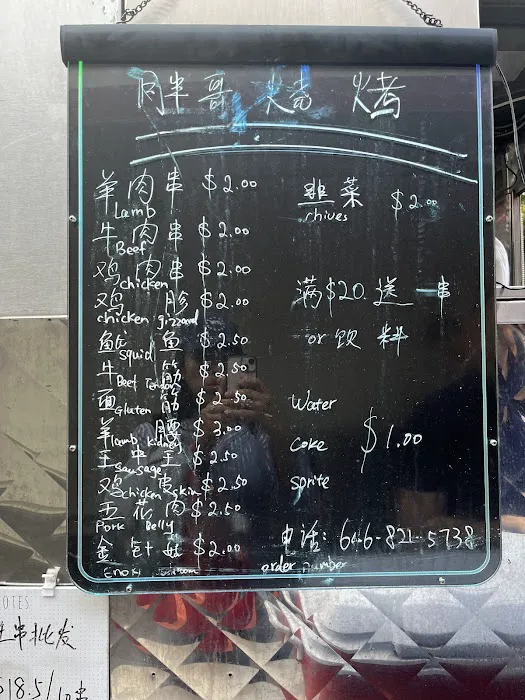 胖哥 烧烤
羊肉串 $2.00
Lamb
牛肉串 $2.00
Beef
鸡肉串 $2.00
chicken
鸡胗 $2.00
chicken gizzard
鱿鱼 $2.50
squid
牛筋 $2.50
Beef Tendon
面筋 $2.50
Gluten
羊腰 $3.00
lamb kidney
王中王 $2.50
sausage
鸡皮 $2.50
chicken skin
五花肉 $2.50
Pork Belly
金针菇 $2.00
Enoki
韭菜 $2.00
chives
满$20 送一串
or 饮料
Water
Coke $1.00
Sprite
电话: 646-821-5738
order number
NOTES
串批发
18.5/10串